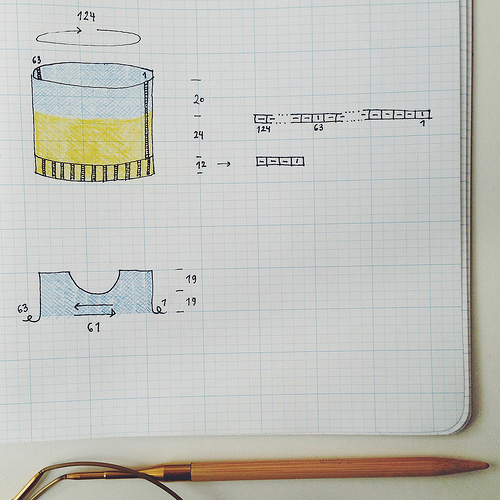 124
63
1
20
24
12
124
63
1
19
19
63
1
61